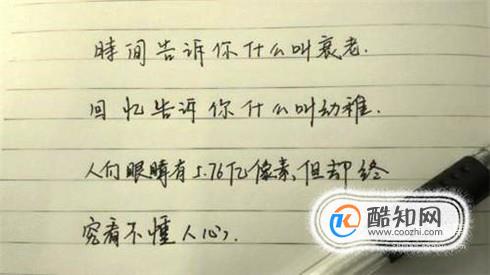 時间告诉你什么叫衰老.
回忆告诉你什么叫幼稚.
人的眼睛有5.76亿像素,但却终
究看不懂人心.
酷知网
www.coozhi.com